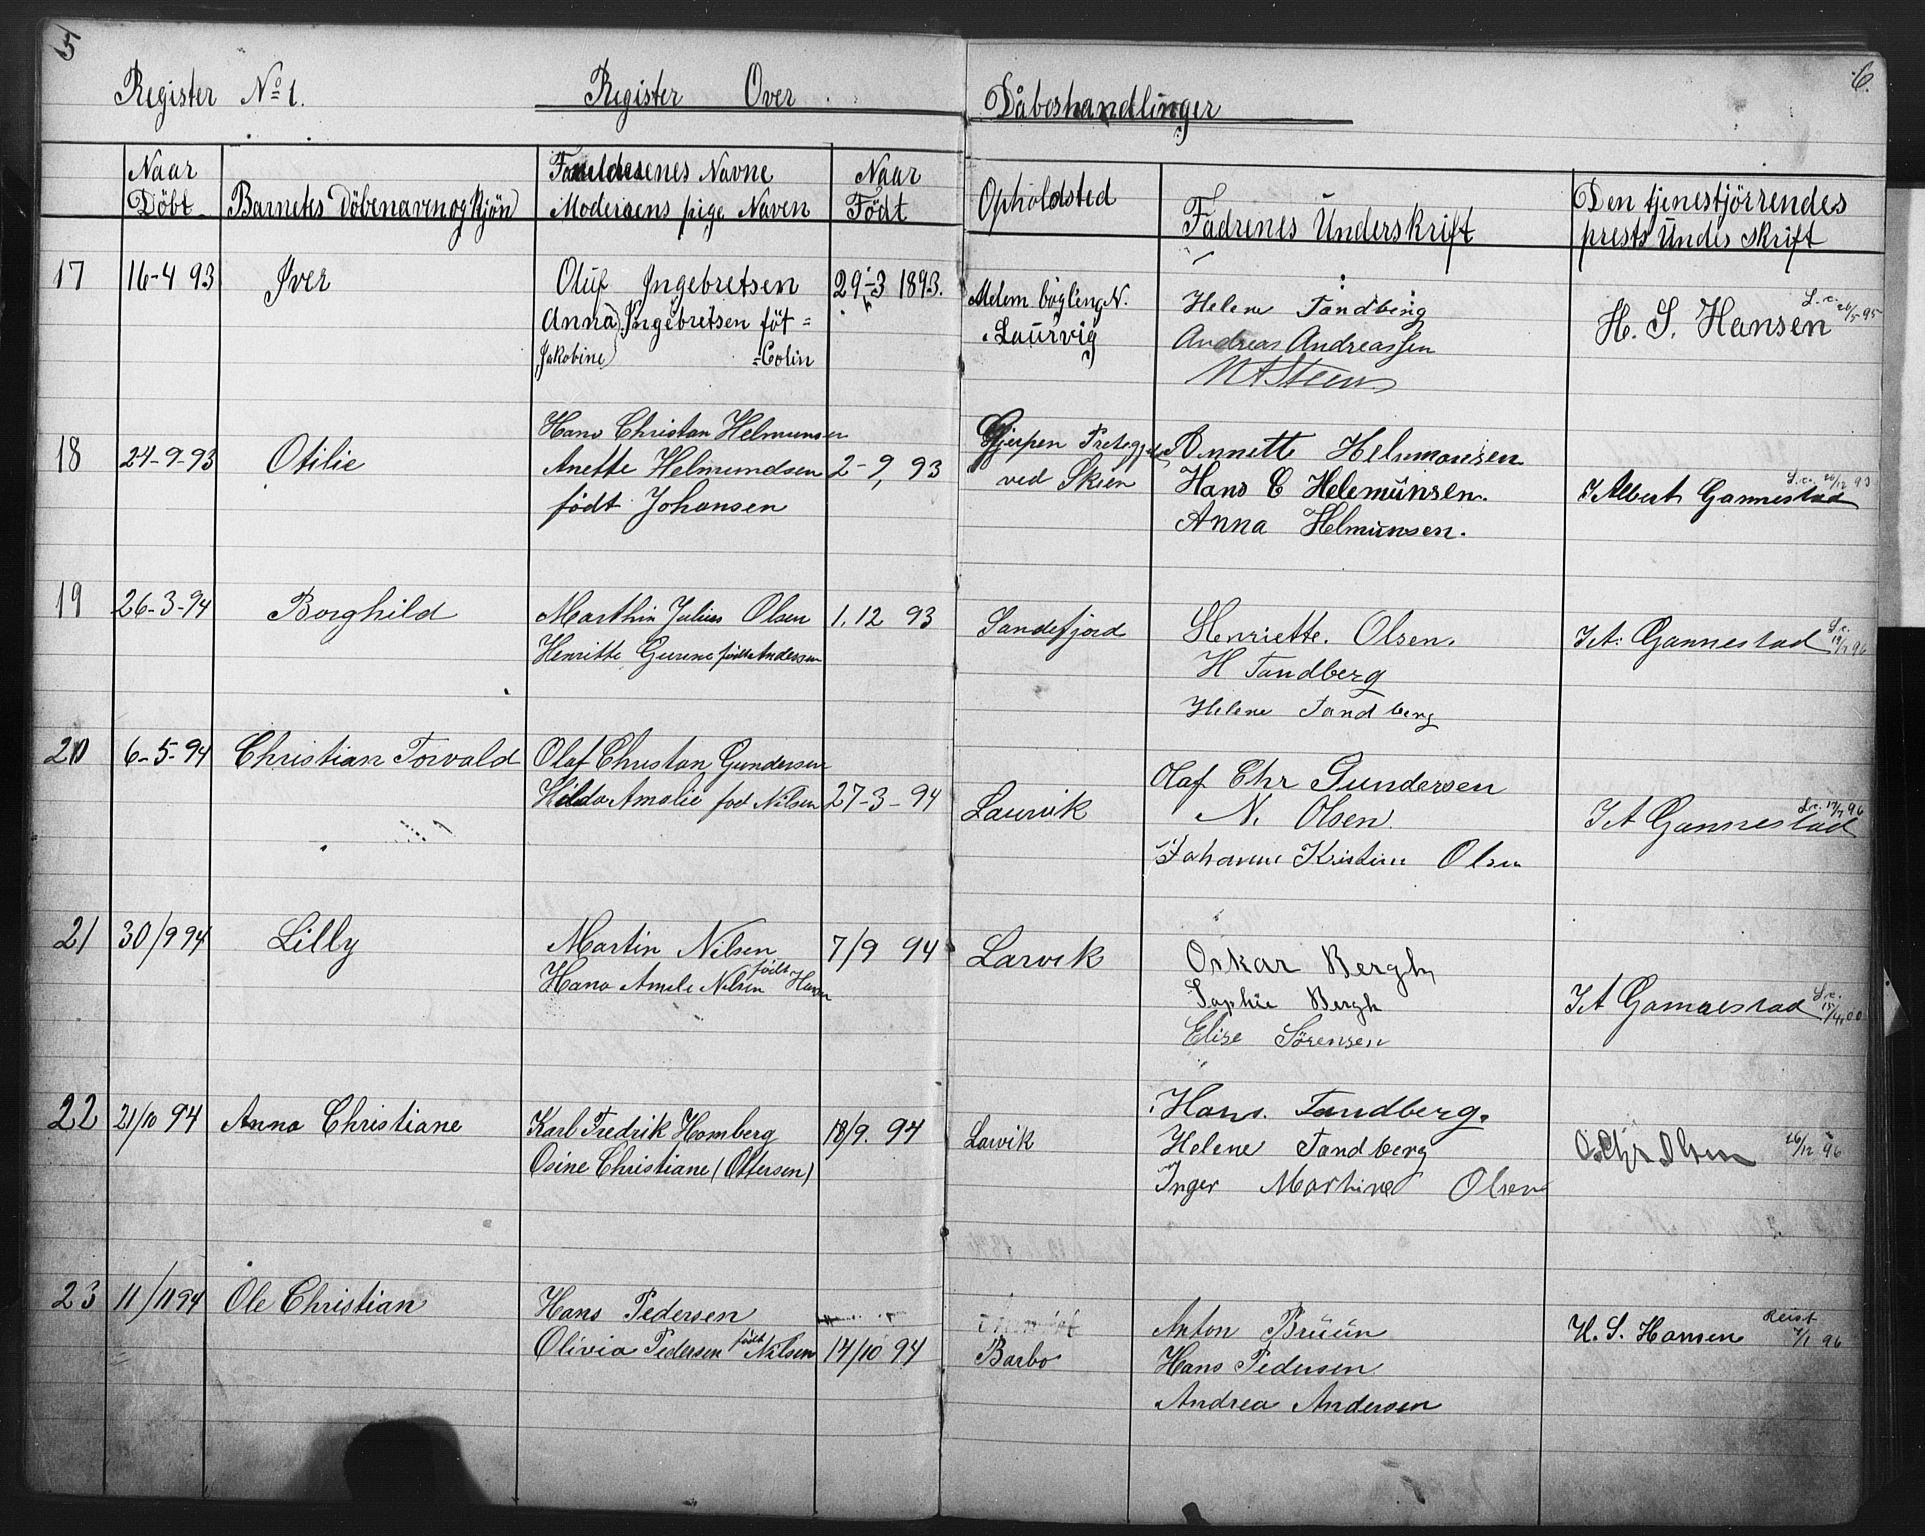 5
6.
Register No 1.
Register Over
Dåbeshandlinger
Naar Döbt
Barnets Döbenavn og Kjön
Forelderenes Navne
Moderaens pige Naven
Naar Födt
Opholdsted
Fadrenes Underskrift
Den tjenestjörrendes
prests Undes skrift
17 16-4 93 Iver
Oluf Ingebretsen 29-3 1893.
Anna Ingebretsen föt =
Jakobine =Colin
Laurvig
Helene Tandberg
Andreas Andreassen
H. S. Hansen
18 24-9-93 Otilie
Hans Christan Helmunsen
Anette Helmundsen 2-9, 93
födt Johansen
Gjerpen
ved Skien
Annette Helmonsen
Hans C Helemunsen.
Anna Helmunsen.
Albert Gannestad
19 26-3-94 Borghild
Marthin Julius Olsen 1. 12 93
Henritte Gurine födt Andersen
Sandefjord
Henriette. Olsen.
H Tandberg
Helene Tandberg
I A. Gannestad
20 6-5-94 Christian Torvald
Olaf Christan Gundersen
Hilda Amalie fod Nilsen 27-3-94
Laurvik
Olaf Chr Gundersen
N. Olsen.
Johanne Kristine Olsen
I A Gannestad
L.c. 17/7 96
21 30/9 94 Lilly
Martin Nilsen 7/9 94
Hana Amele Nilsen födt
Larvik
Oskar Bergh
Sophie Bergh
Elise Sörensen
I A Gannestad
22 21/10 94 Anna Christiane
Karl Fredrik Homberg 18/9. 94
Osine Christiane (Ottersen)
Larvik
Hans. Tandberg.
Helene Tandberg
Inger Martine Olsen
26/12 96
23 11/11 94 Ole Christian
Hans Pedersen
Olivia Pedersen födt Nilsen 14/10 94
Barbo
Anton Bruun
Hans Pedersen
Andrea Andersen
H. S. Hansen
7/1 96